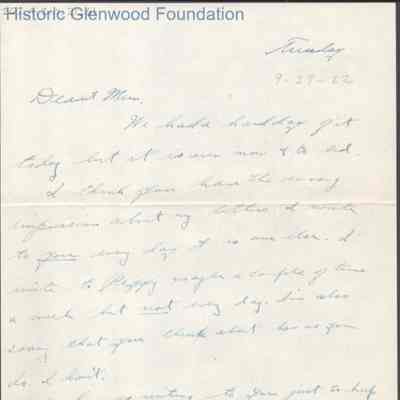 Historic Glenwood Foundation
Tuesday
9-29-42
Dearest Mum,
We had a hard day of it
today but it is over now & to bed.
I think you have the wrong
impression about my letters. I write
to you every day & no one else. I
write to Peggy maybe a couple of times
a week but not every day. I'm also
sorry that you think about her as you
do. I don't.
writing to Dave just to keep